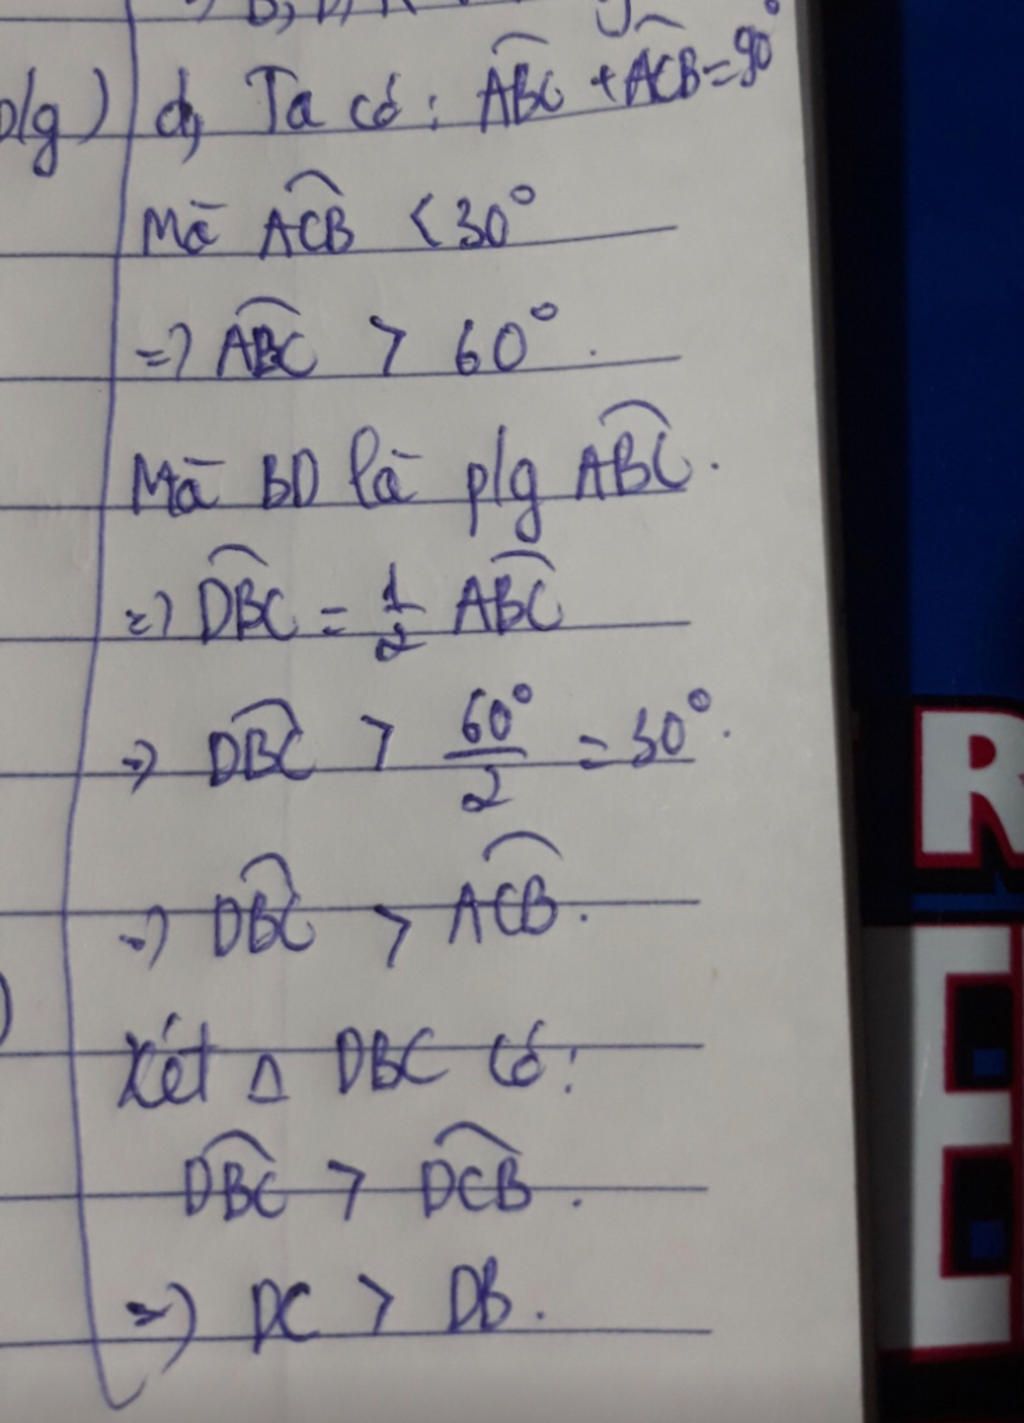 p/g) d, Ta có: ABC + ACB = 90°
Mà ACB < 30°
=> ABC > 60°.
Mà BD là p/g ABC.
=> DBC = 1/2 ABC
=> DBC > 60°/2 = 30°.
=> DBC > ACB.
Xét Δ DBC có:
DBC > DCB.
=> DC > DB.
R
E